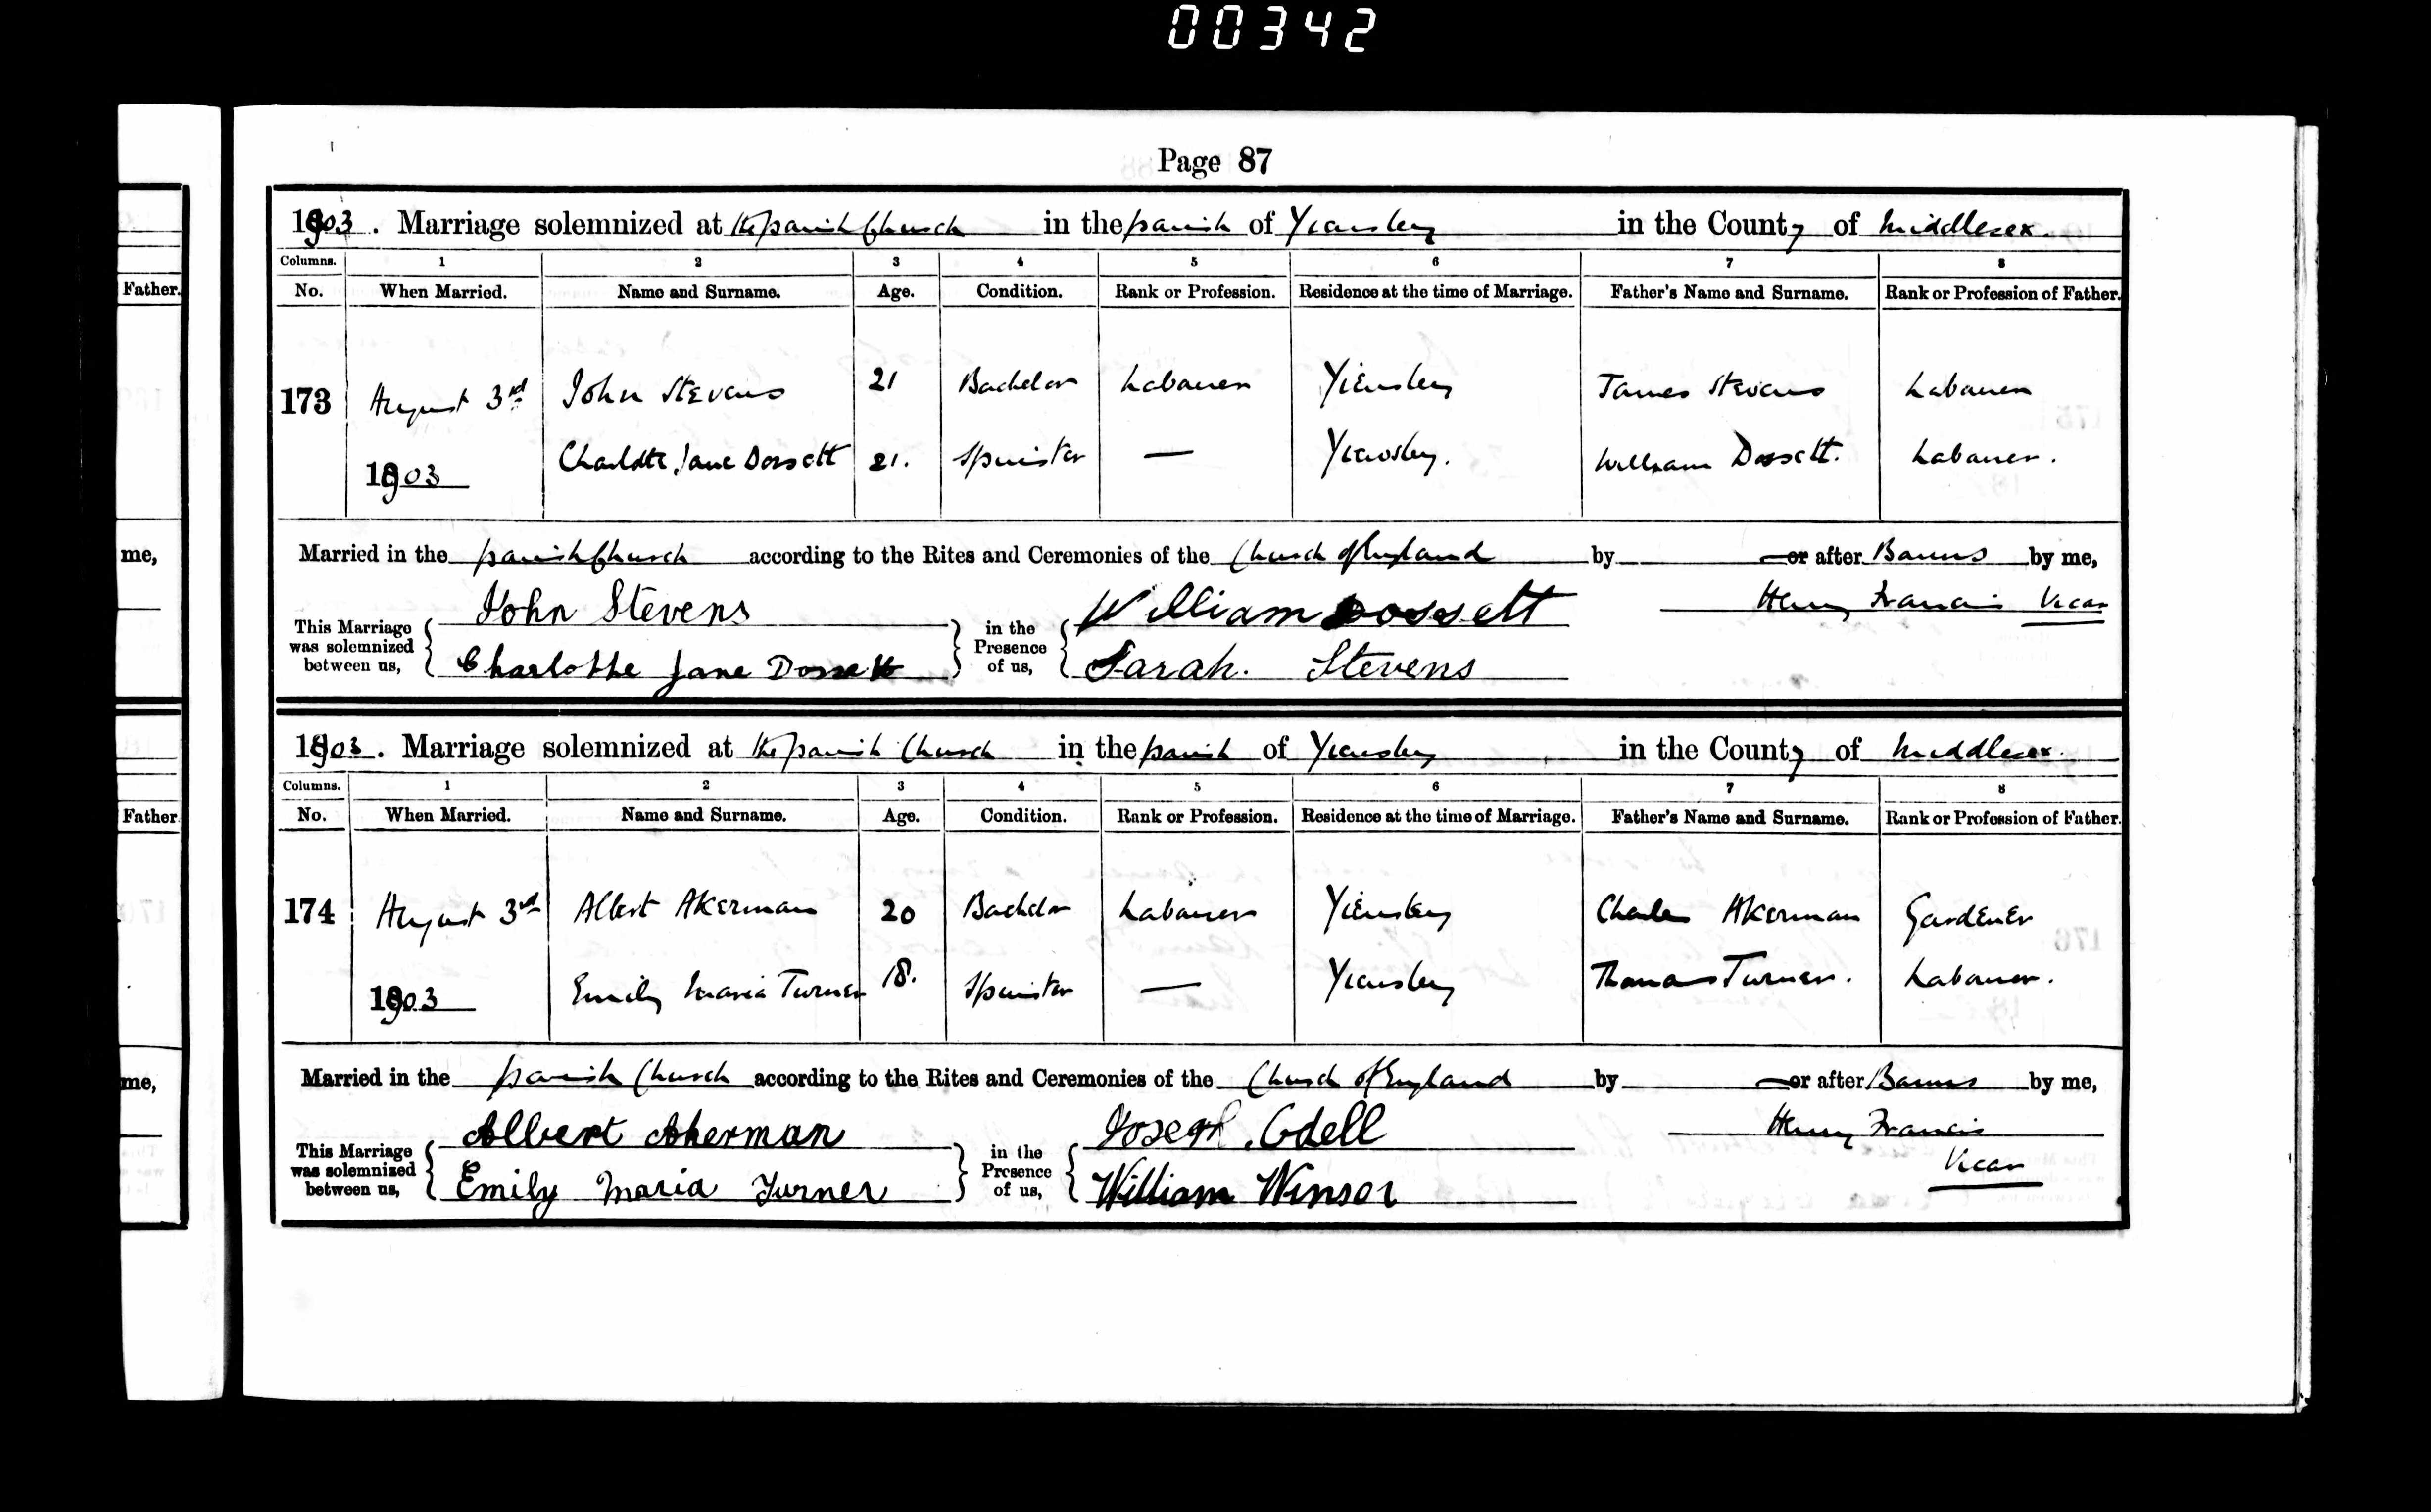 00342
Page 87
1903. Marriage solemnized at the parish Church in the parish of Yiewsley in the County of Middlesex.
Columns. 1 2 3 4 5 6 7 8
No. When Married. Name and Surname. Age. Condition. Rank or Profession. Residence at the time of Marriage. Father's Name and Surname. Rank or Profession of Father.
173 August 3rd John Stevens 21 Bachelor Labourer Yiewsley James Stevens Labourer
1903 Charlotte Jane Dossett 21. Spinster — Yiewsley. William Dossett. Labourer.
Married in the parish Church according to the Rites and Ceremonies of the Church of England by or after Banns by me,
John Stevens William Dossett Henry Francis Vicar
This Marriage was solemnized between us, in the Presence of us,
Charlotte Jane Dossett Sarah. Stevens
1903. Marriage solemnized at the parish Church in the parish of Yiewsley in the County of Middlesex.
Columns. 1 2 3 4 5 6 7 8
No. When Married. Name and Surname. Age. Condition. Rank or Profession. Residence at the time of Marriage. Father's Name and Surname. Rank or Profession of Father.
174 August 3rd Albert Akerman 20 Bachelor Labourer Yiewsley Charles Akerman Gardener
1903 Emily Maria Turner 18. Spinster — Yiewsley Thomas Turner. Labourer.
Married in the parish Church according to the Rites and Ceremonies of the Church of England by or after Banns by me,
Albert Akerman Joseph Odell Henry Francis
This Marriage was solemnized between us, in the Presence of us, Vicar
Emily Maria Turner William Winsor
Father.
me,
Father
me,